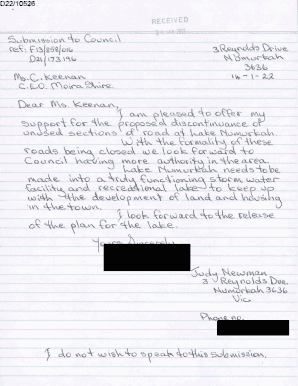 D22/10526
RECEIVED
Submission to Council
ref: F13/859/016
D21/173196
3 Reynolds Drive
Numurkah
3636
16-1-22
Ms. C. Keenan
C.E.O. Moira Shire.
Dear Ms. Keenan,
I am pleased to offer my
support for the proposed discontinuance of
unused sections of road at Lake Numurkah.
With the formality of these
roads being closed we look forward to
Council having more authority in the area.
Lake Numurkah needs to be
made into a truly functioning storm water
facility and recreational lake to keep up
with the development of land and housing
in the town.
I look forward to the release
of the plan for the lake.
Yours Sincerely
Judy Newman
3 Reynolds Dve.
Numurkah 3636
Vic
Phone no.
I do not wish to speak to this submission.